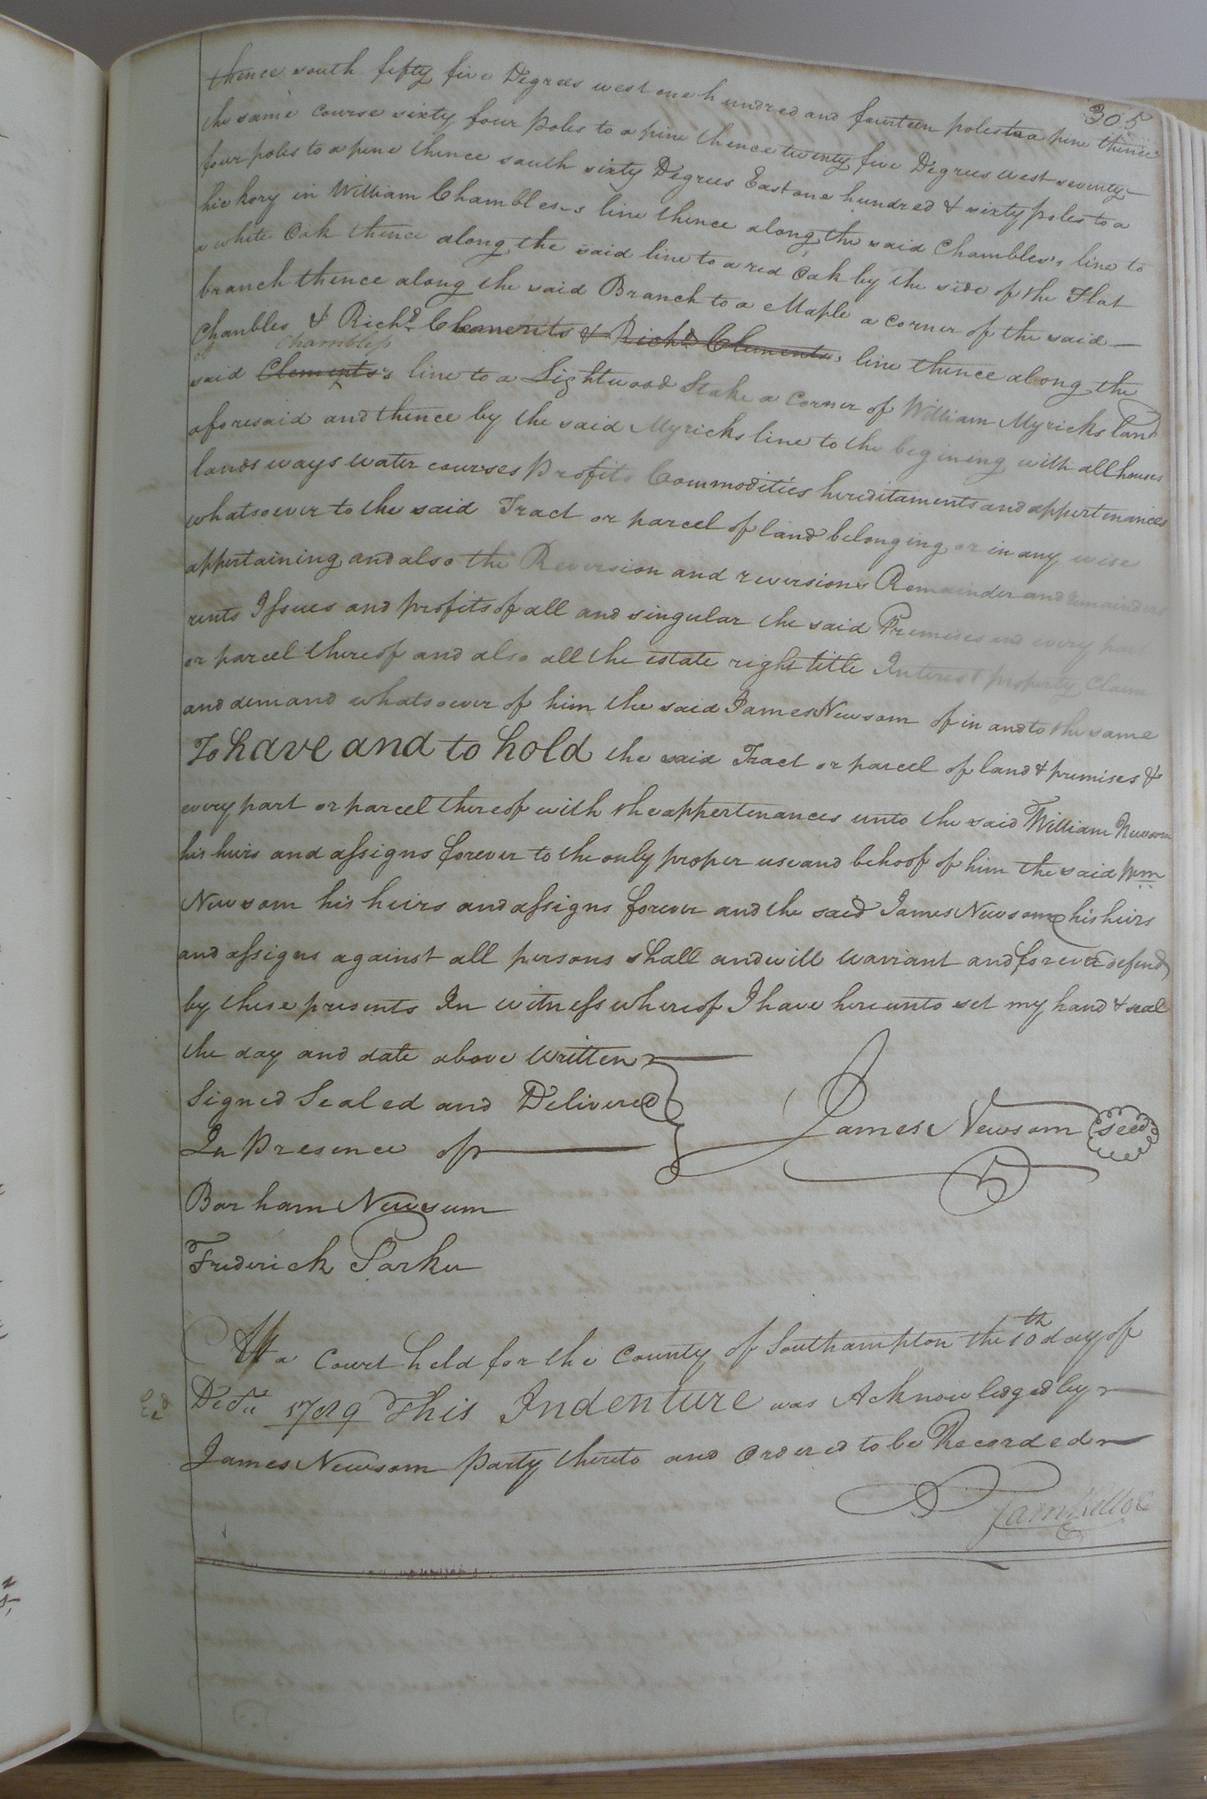 305
thence south fifty five Degrees west one hundred and fourteen poles to a pine thence
the same course sixty four poles to a pine thence twenty five Degrees west seventy
four poles to a pine thence south sixty Degrees East one hundred & sixty poles to a
hickory in William Chambles,s line thence along the said Chambles,s line to
a white Oak thence along the said line to a red Oak by the side of the Flat
branch thence along the said Branch to a Maple a corner of the said
Chambles & Richd. Clements & Richd. Clements,s line thence along the
Chambless
said Clements,s line to a Lightwood Stake a Corner of William Myricks land
aforesaid and thence by the said Myricks line to the begining with all houses
lands ways water courses profits Commodities hereditaments and appertenances
whatsoever to the said Tract or parcel of land belonging or in any wise
appertaining and also the Reversion and reversions Remainder and remainders
rents Issues and profits of all and singular the said Premises and every part
or parcel thereof and also all the estate right title Interest property Claim
and demand whatsoever of him the said James Newsom of in and to the same
To have and to hold the said Tract or parcel of land & premises &
every part or parcel thereof with the appertenances unto the said William Newsom
his heirs and assigns forever to the only proper use and behoof of him the said Wm
Newsom his heirs and assigns forever and the said James Newsom his heirs
and assigns against all persons shall and will warrant and forever defend
by these presents In witness whereof I have hereunto set my hand & seal
the day and date above written
Signed Sealed and Delivered
In Presence of
James Newsom seal
Barham Newsum
Frederick Parker
At a Court held for the County of Southampton the 10th day of
Decr. 1789 This Indenture was Acknowledged by
James Newsom party thereto and Ordered to be Recorded
Exd